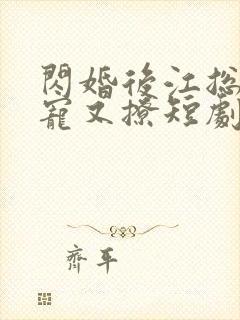 閃婚後江总
寵又撩短劇
齊平